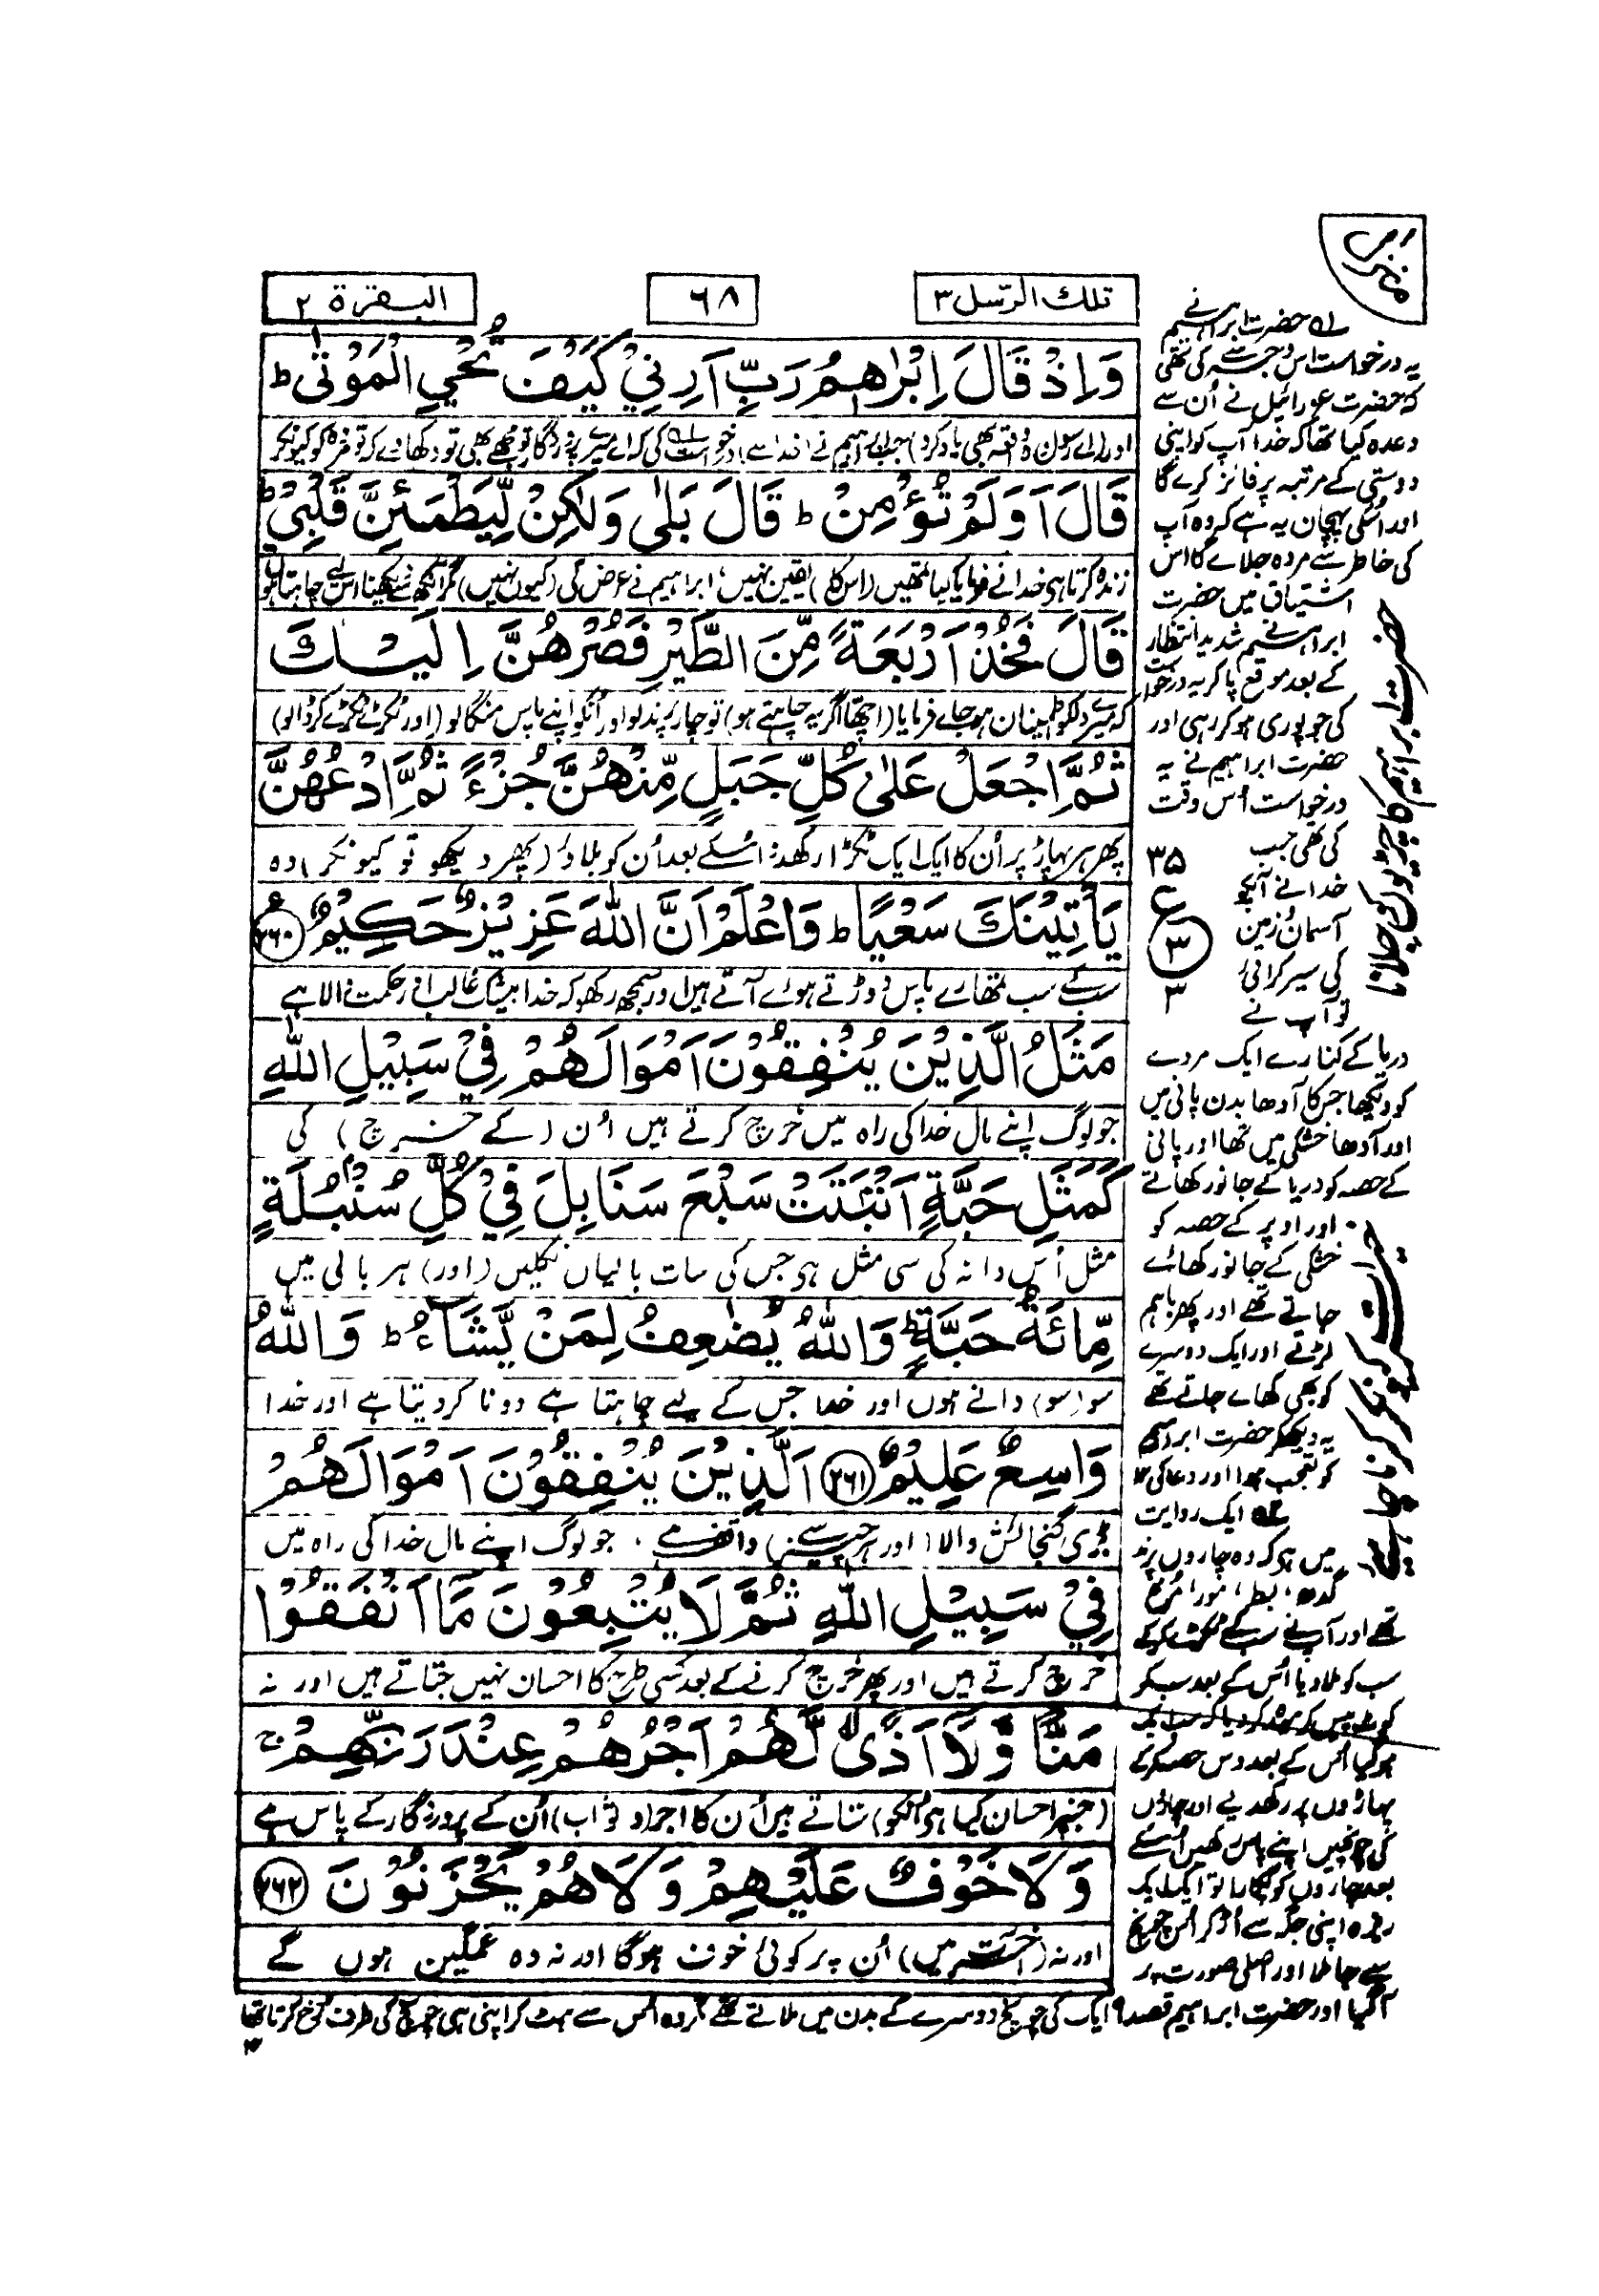 منزل
تلك الرسل ٣
٦٨
البقرة ٢
وَاِذْ قَالَ اِبْرٰهِمُ رَبِّ اَرِنِيْ كَيْفَ تُحْيِ الْمَوْتٰى ط
اور (اے رسول وہ واقعہ بھی یاد کرو) جب ابراہیم نے (خدا سے) درخواست کی کہ اے میرے پروردگار تو مجھے بھی تو دکھا دے کہ تو مردہ کو کیونکر
قَالَ اَوَلَمْ تُؤْمِنْ ط قَالَ بَلٰى وَلٰكِنْ لِّيَطْمَئِنَّ قَلْبِيْ ط
زندہ کرتا ہی خدا نے فرمایا کیا تمھیں (اس کا) یقین نہیں، ابراہیم نے عرض کی (کیوں نہیں) مگر آنکھ سے دیکھنا اس لیے چاہتا ہوں
قَالَ فَخُذْ اَرْبَعَةً مِّنَ الطَّيْرِ فَصُرْهُنَّ اِلَيْكَ
کہ میرے دلکو اطمینان ہو جاے فرمایا (اچھا اگر یہ چاہتے ہو) تو چار پرند لو اور اُنکو اپنے پاس منگا لو (اور ٹکڑے ٹکڑے کر ڈالو)
ثُمَّ اجْعَلْ عَلٰى كُلِّ جَبَلٍ مِّنْهُنَّ جُزْءًا ثُمَّ ادْعُهُنَّ
پھر ہر پہاڑ پر اُن کا ایک ایک ٹکڑا رکھدو اسکے بعد اُن کو بلاؤ (پھر دیکھو تو کیونکر) وہ
يَأْتِيْنَكَ سَعْيًا ط وَاعْلَمْ اَنَّ اللّٰهَ عَزِيْزٌ حَكِيْمٌ ٢٦٠
سب کے سب تمھارے پاس دوڑتے ہوئے آتے ہیں اور سمجھ رکھو کہ خدا بیشک غالب اور حکمت والا ہے
مَثَلُ الَّذِيْنَ يُنْفِقُوْنَ اَمْوَالَهُمْ فِيْ سَبِيْلِ اللّٰهِ
جو لوگ اپنے مال خدا کی راہ میں خرچ کرتے ہیں اُن (کے خرچ) کی
كَمَثَلِ حَبَّةٍ اَنْبَتَتْ سَبْعَ سَنَابِلَ فِيْ كُلِّ سُنْبُلَةٍ
مثل اُس دانہ کی سی مثل ہی جس کی سات بالیاں نکلیں (اور) ہر بالی میں
مِّائَةُ حَبَّةٍ ط وَاللّٰهُ يُضٰعِفُ لِمَنْ يَّشَآءُ ط وَاللّٰهُ
سو (سو) دانے ہوں اور خدا جس کے لیے چاہتا ہے دونا کر دیتا ہے اور خدا
وَاسِعٌ عَلِيْمٌ ٢٦١ اَلَّذِيْنَ يُنْفِقُوْنَ اَمْوَالَهُمْ
بڑی گنجائش والا (اور ہر چیز سے) واقف ہے . جو لوگ اپنے مال خدا کی راہ میں
فِيْ سَبِيْلِ اللّٰهِ ثُمَّ لَا يُتْبِعُوْنَ مَآ اَنْفَقُوْا
خرچ کرتے ہیں اور پھر خرچ کرنے کے بعد کسی طرح کا احسان نہیں جتاتے ہیں اور نہ
مَنًّا وَّلَآ اَذًى لَّهُمْ اَجْرُهُمْ عِنْدَ رَبِّهِمْ ج
(جنپر احسان کیا ہی اُنکو) ستاتے ہیں اُن کا اجر (و ثواب) اُن کے پروردگار کے پاس ہے
وَلَا خَوْفٌ عَلَيْهِمْ وَلَا هُمْ يَحْزَنُوْنَ ٢٦٢
اور نہ (آخرت میں) اُن پر کوئی خوف ہوگا اور نہ وہ غمگین ہوں گے
حضرت ابراہیم نے
یہ درخواست اس وجہ سے کی تھی
کہ حضرت عزرائیل نے اُن سے
وعدہ کیا تھا کہ خدا آپ کو اپنی
دوستی کے مرتبہ پر فائز کرے گا
اور اُسکی پہچان یہ ہے کہ وہ آپ
کی خاطر سے مردہ جلاے گا اس
اشتیاق میں حضرت
ابراہیم شدید انتظار
کے بعد موقع پا کر یہ درخواست
کی جو پوری ہو کر رہی اور
حضرت ابراہیم نے یہ
درخواست اُس وقت
کی تھی جب
خدا نے آپکو
آسمان و زمین
کی سیر کرائی
تو آپ نے
٣٥
ع
٣
٣
دریا کے کنارے ایک مردے
کو دیکھا جس کا آدھا بدن پانی میں
اور آدھا خشکی میں تھا اور پانی
کے حصہ کو دریا کے جانور کھاتے
اور اوپر کے حصہ کو
خشکی کے جانور کھائے
جاتے تھے اور پھر باہم
لڑتے اور ایک دوسرے
کو بھی کھاے جاتے تھے
یہ دیکھکر حضرت ابراہیم
کو تعجب ہوا اور دعا کی ١٢
ایک روایت
میں ہی کہ وہ چاروں پرند
گدھ، بط، مور، مرغ
تھے اور آپ نے سب کے ٹکڑے کر کے
سب کو ملا دیا اُس کے بعد سب کو
ہوگیا اُس کے بعد دس حصہ کر کے
پہاڑوں پر رکھدیے اور چاروں
کی چونچیں اپنے پاس رکھیں اُسکے
بعد چاروں کو پکارا تو ایک ایک
ریزہ اپنی جگہ سے اُڑ کر اُس چونچ
سے جا ملا اور اصلی صورت پر
آگیا اور حضرت ابراہیم قصداً ایک کی چونچ دوسرے کے بدن میں ملاتے تھے مگر وہ اُس سے ہٹ کر اپنی ہی چونچ کی طرف رُخ کرتا تھا
١٢